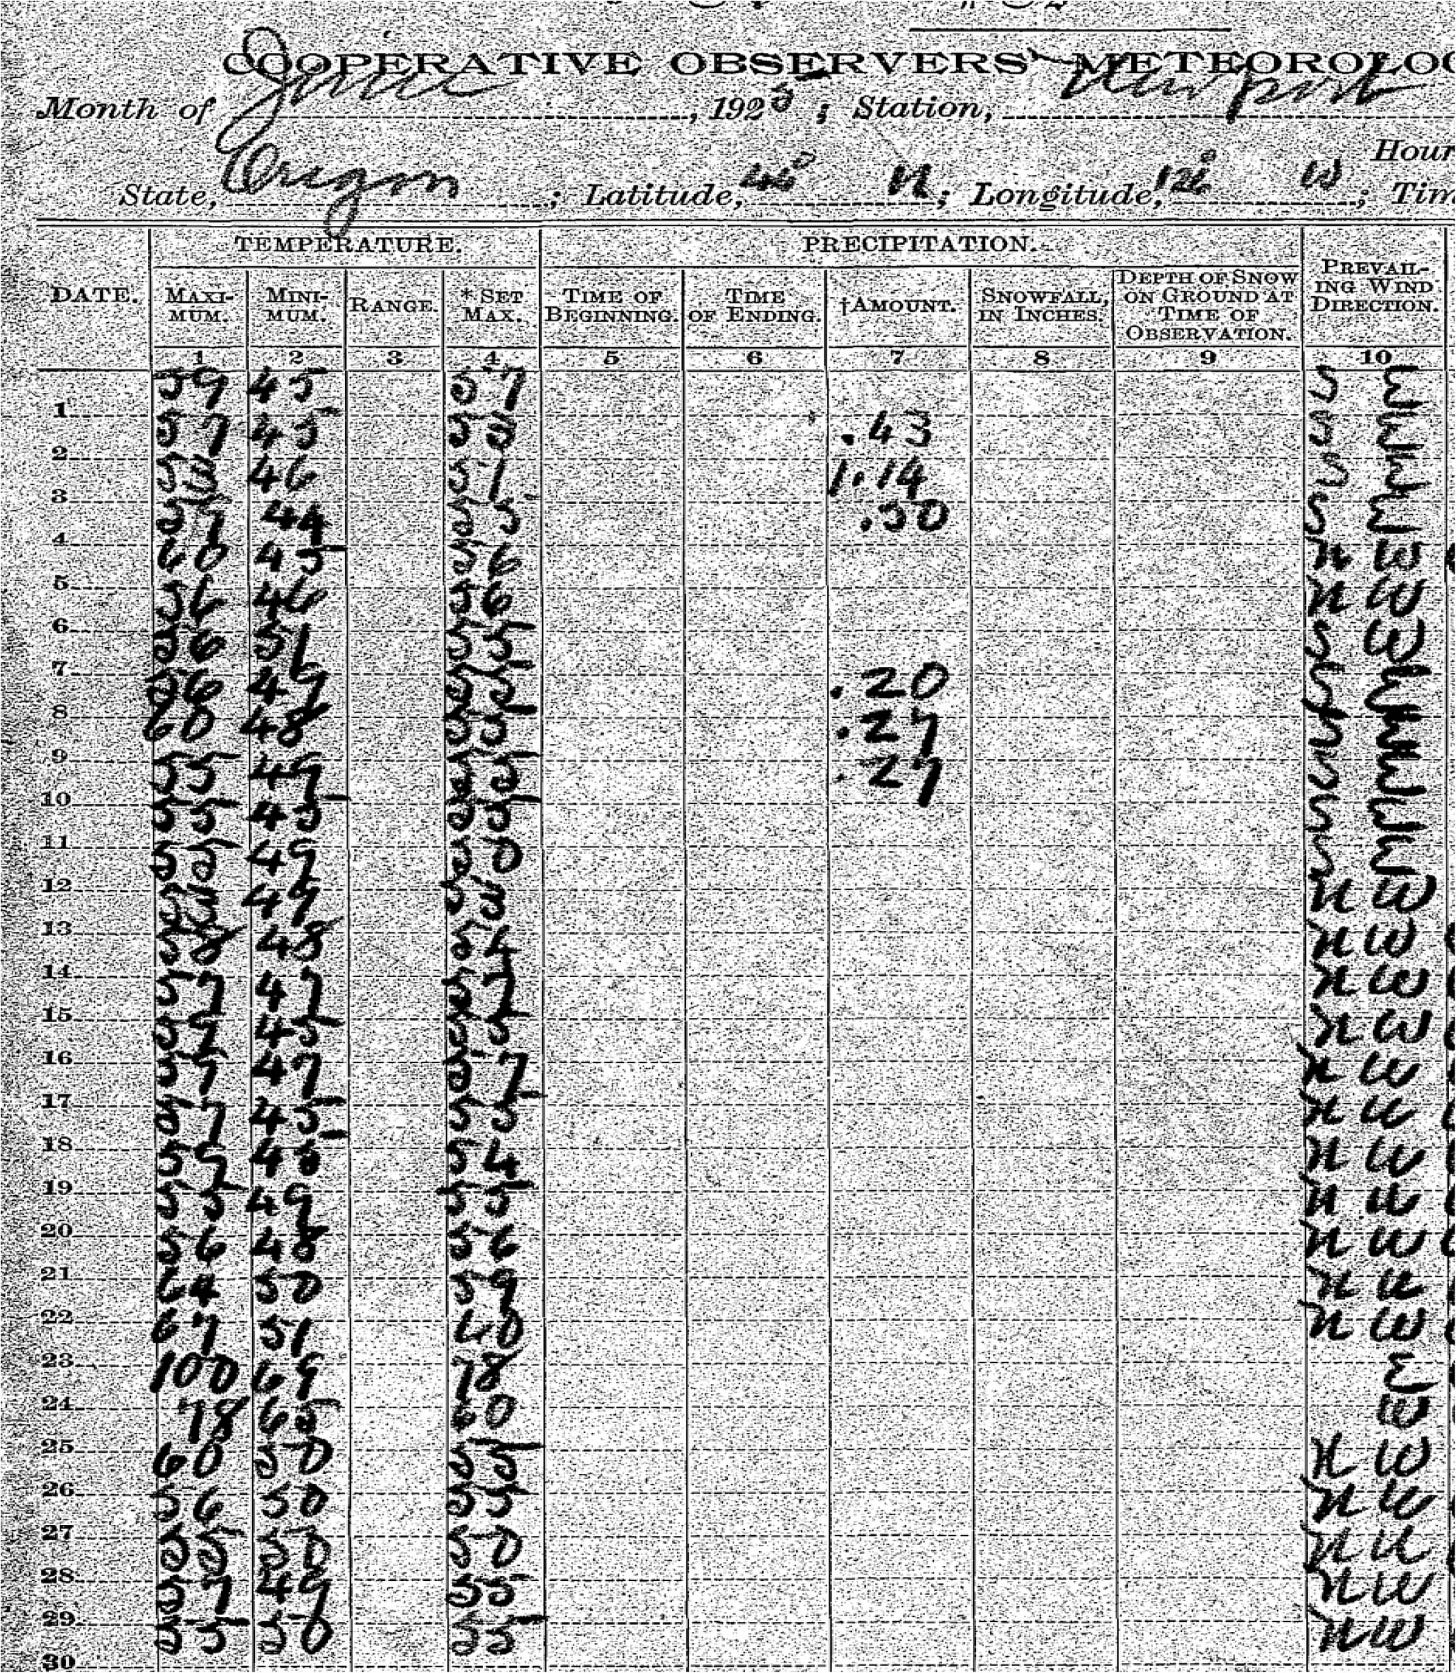 COOPERATIVE OBSERVERS' METEOROLO
Month of June, 1925; Station, Newport
Hour
State, Oregon; Latitude, 45° N; Longitude, W; Tim
TEMPERATURE. PRECIPITATION.
DATE. MAXI-MUM. MINI-MUM. RANGE. *SET MAX. TIME OF BEGINNING. TIME OF ENDING. †AMOUNT. SNOWFALL, IN INCHES. DEPTH OF SNOW ON GROUND AT TIME OF OBSERVATION. PREVAIL-ING WIND DIRECTION.
1 2 3 4 5 6 7 8 9 10
1 59 45 57 S E
2 57 45 53 .43 S E
3 53 46 51 1.14 S E
4 57 44 55 .50 S E
5 60 45 56 N W
6 56 46 56 N W
7 56 51 55 S W
8 56 49 55 .20 S E
9 60 48 55 .27 S E
10 55 49 55 .27 S E
11 55 45 55 S E
12 55 49 50 S E
13 49 53 N W
14 58 48 54 N W
15 57 47 57 N W
16 57 45 55 N W
17 57 47 57 N W
18 57 45 55 N W
19 57 45 54 N W
20 55 49 55 N W
21 56 48 56 N W
22 64 50 59 N W
23 67 51 60 N W
24 100 69 78 E
25 78 65 60 W
26 60 50 55 N W
27 56 50 55 N W
28 55 50 50 N W
29 57 49 55 N W
30 55 50 55 N W